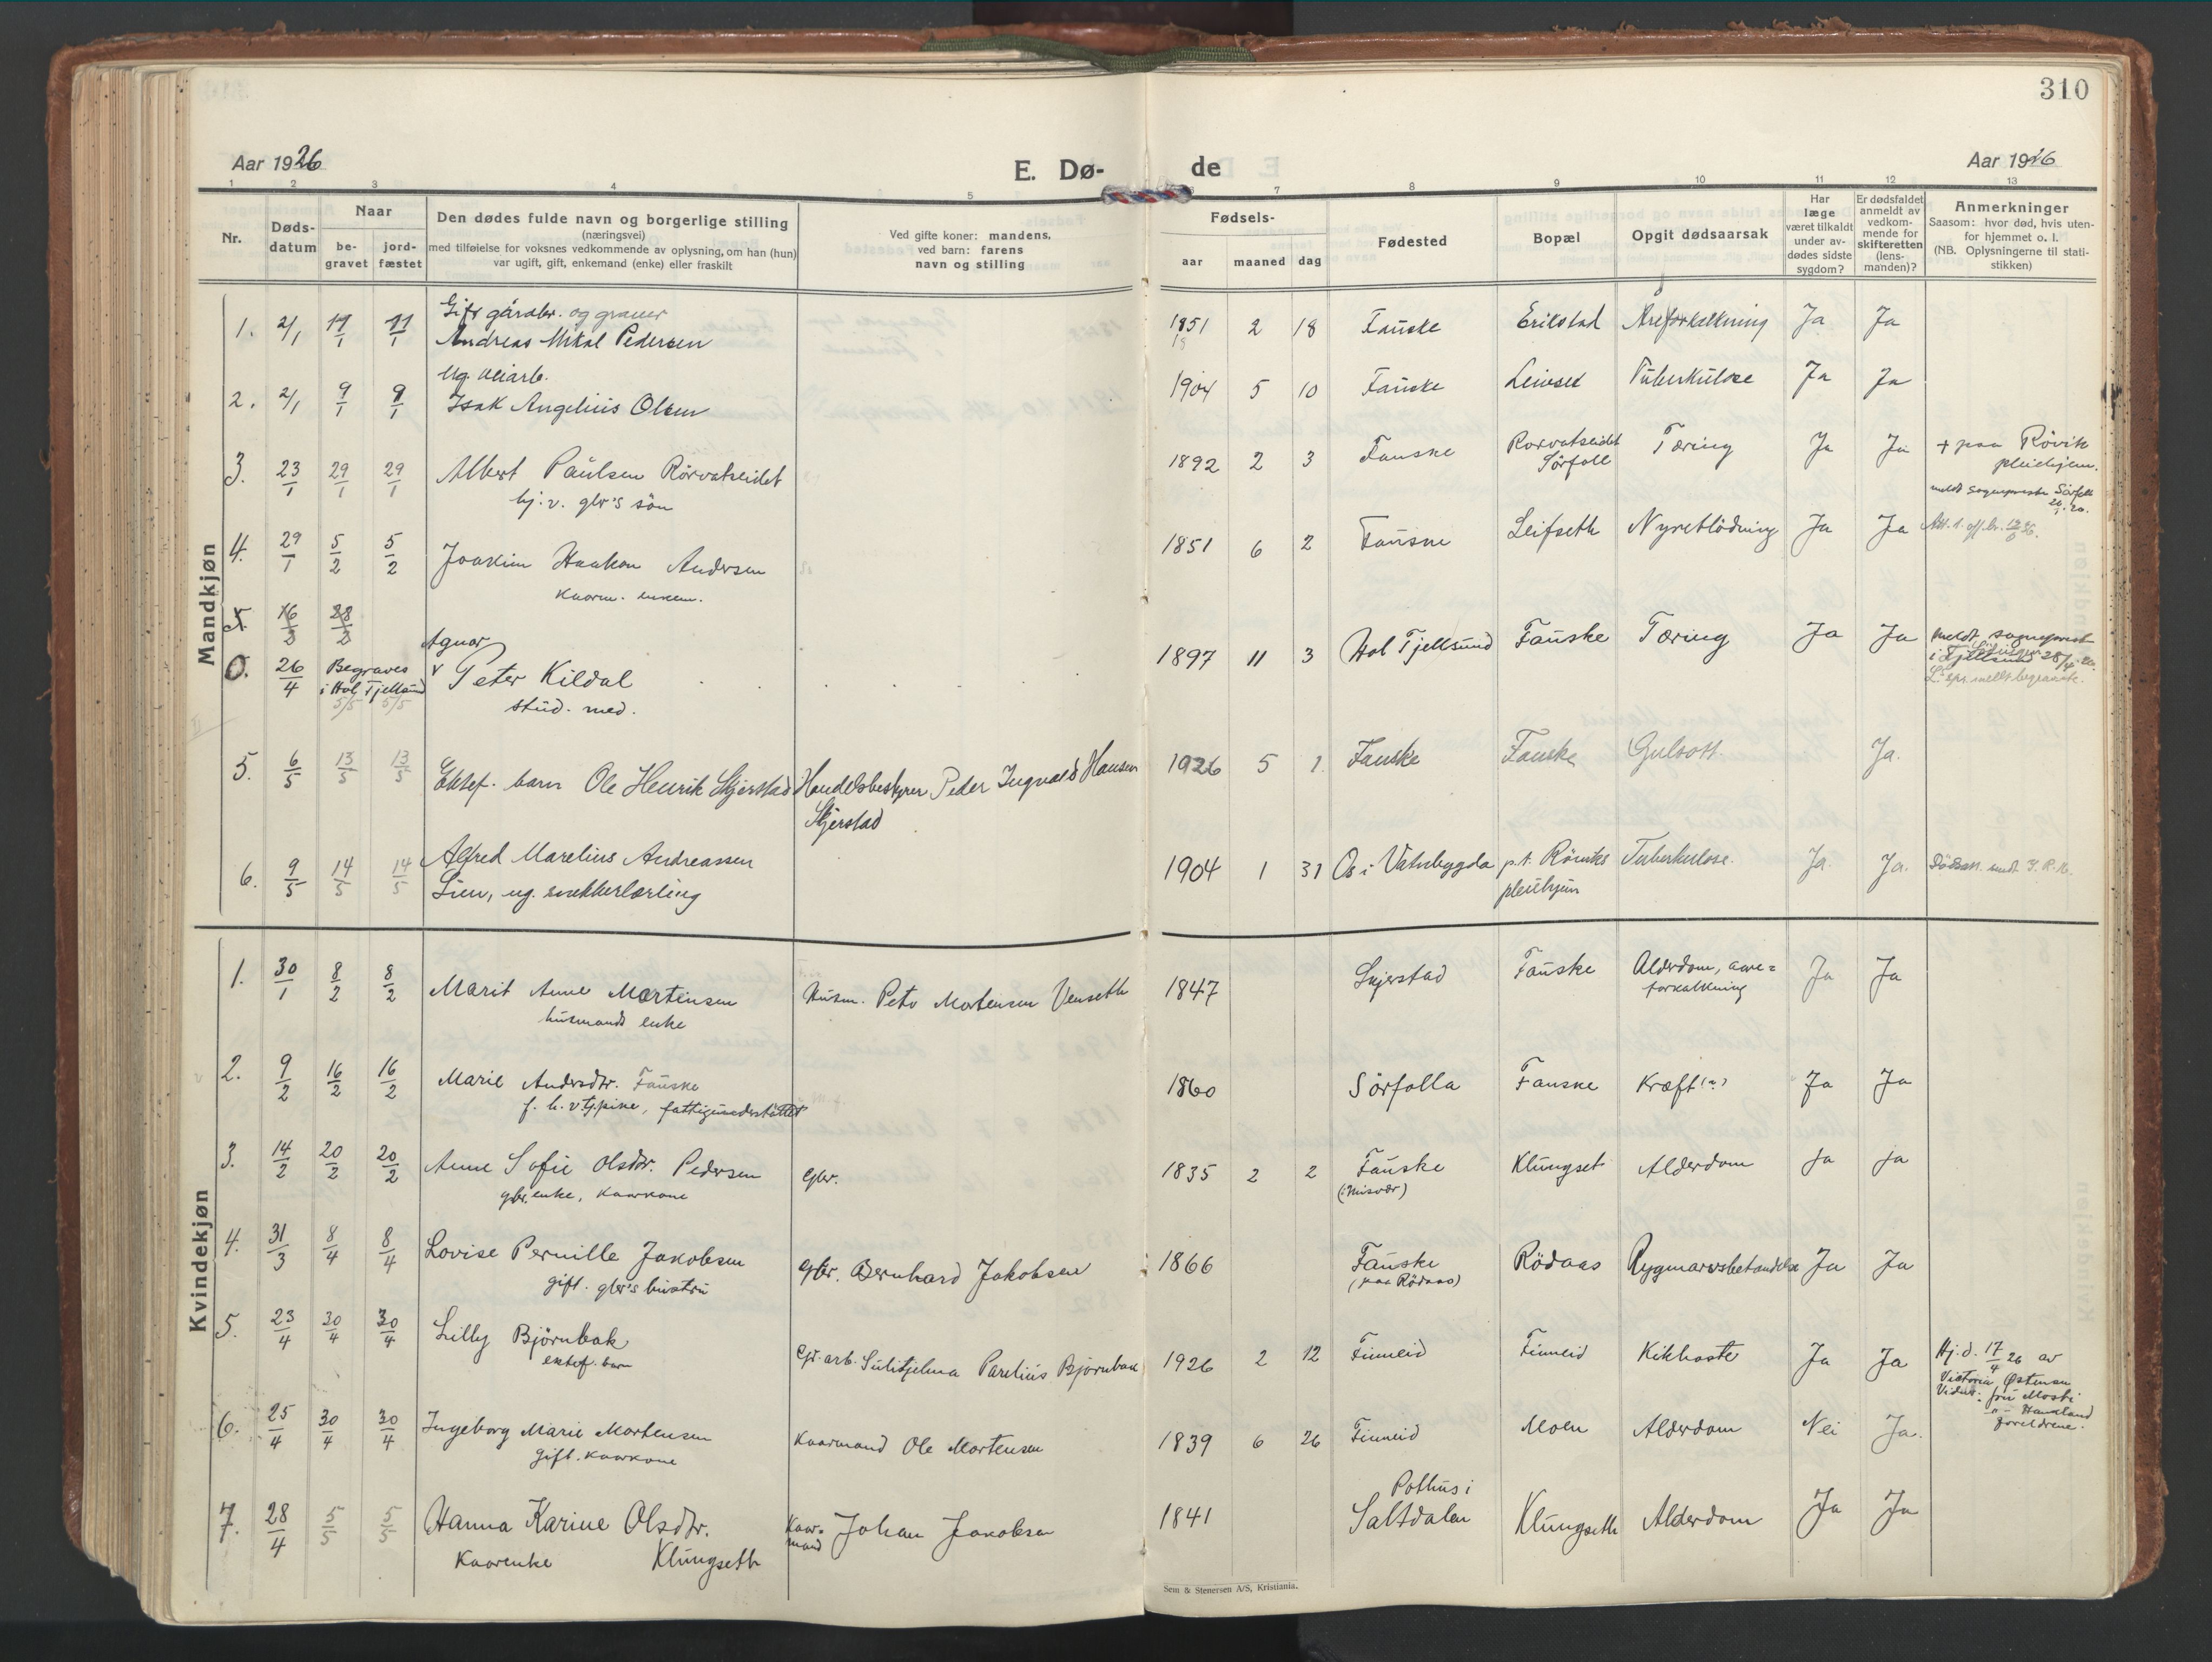 310
Aar 1926
E. Dø-
de
Aar 1926
1 2 3 4 5 7 8 9 10 11 12 13
Nr.
Døds-
datum
Naar
be-
gravet
jord-
fæstet
Den dødes fulde navn og borgerlige stilling
(næringsvei)
med tilføielse for voksnes vedkommende av oplysning, om han (hun)
var ugift, gift, enkemand (enke) eller fraskilt
Ved gifte koner: mandens,
ved barn: farens
navn og stilling
Fødsels-
aar
maaned
dag
Fødested
Bopæl
Opgit dødsaarsak
Har
læge
været tilkaldt
under av-
dødes sidste
sygdom?
Er dødsfaldet
anmeldt av
vedkom-
mende for
skifteretten
(lens-
manden)?
Anmerkninger
Saasom: hvor død, hvis uten-
for hjemmet o. l.
(NB. Oplysningerne til stati-
stikken)
Mandkjøn
Gift gårdbr. og graver
1. 2/1 11/1 11/1 Andreas Mikal Pedersen 1851 2 18 Fauske Erikstad Åreforkalkning Ja Ja
Ug. veiarb.
2. 2/1 9/1 9/1 Isak Angelius Olsen 1904 5 10 Fauske Leivset Tuberkulose Ja Ja
3. 23/1 29/1 29/1 Albert Paulsen Rörvatseidet 1892 2 3 Fauske Rorvatseidet Tæring Ja Ja + paa Rövik
hj. v. gbr's sön Sörfold pleiehjem.
meldt sogneprest Sörfold
4. 29/1 5/2 5/2 Joakim Haakon Andersen 1851 6 2 Fauske Leifseth Nyreblödning Ja Ja
Kaarm. enkem.
5. 16/3 28/3
Agnar
0. 26/4 Begraves Peter Kildal 1897 11 3 Hol Tjellsund Fauske Tæring Ja Ja meldt sogneprest
i Hol Tjellsund stud. med. i Tjellsund 28/4 26.
5/5 5/5
5. 6/5 13/5 13/5 Ektef. barn Ole Henrik Skjerstad Handelsbestyrer Peder Ingvald Hansen 1926 5 1. Fauske Fauske Gulsott Ja.
Skjerstad
6. 9/5 14/5 14/5 Alfred Marelius Andreassen 1904 1 31 Os i Vatnbygda p.t. Röviks Tuberkulose. Ja. Ja.
Lien, ug. snekkerlærling pleiehjem
Kvindekjøn
1. 30/1 8/2 8/2 Marit Anne Mortensen Husm. Peter Mortensen Venseth 1847 Skjerstad Fauske Alderdom, aare=
husmands enke forkalkning Ja Ja
2. 9/2 16/2 16/2 Marie Andersdtr. Fauske 1860 Sörfolla Fauske Kræft (?) Ja Ja
f. h. v. tj.pike, fattigunderstöttet
3. 14/2 20/2 20/2 Anne Sofie Olsdtr. Pedersen gbr. 1835 2 2 Fauske Klungset Alderdom Ja Ja
gbr. enke, kaarkone (Misvær)
4. 31/3 8/4 8/4 Lovise Pernille Jakobsen gbr. Bernhard Jakobsen 1866 Fauske Rödaas Rygmarvsbetændelse Ja Ja
gift. gbr's hustru (paa Rödaas)
5. 23/4 30/4 30/4 Lilly Björnbak Gr. arb. Sulitjelma Parelius Bjørnbak 1926 2 12 Finneid Finneid Kikhoste Ja Ja Hj.d. 17/4 26 av
ektef. barn Victoria Østensen
Vidner: fru Mosti
-"- Haukland
foreldrene.
6. 25/4 30/4 30/4 Ingeborg Marie Mortensen Kaarmand Ole Mortensen 1839 6 26 Finneid Moen Alderdom Nei Ja.
gift. kaarkone
7. 28/4 5/5 5/5 Hanna Karine Olsdtr. Kaar=
mand Johan Jakobsen 1841 Pothus i
Saltdalen Klungseth Alderdom Ja Ja
Kaarenke Klungseth
Sem & Stenersen A/S, Kristiania.